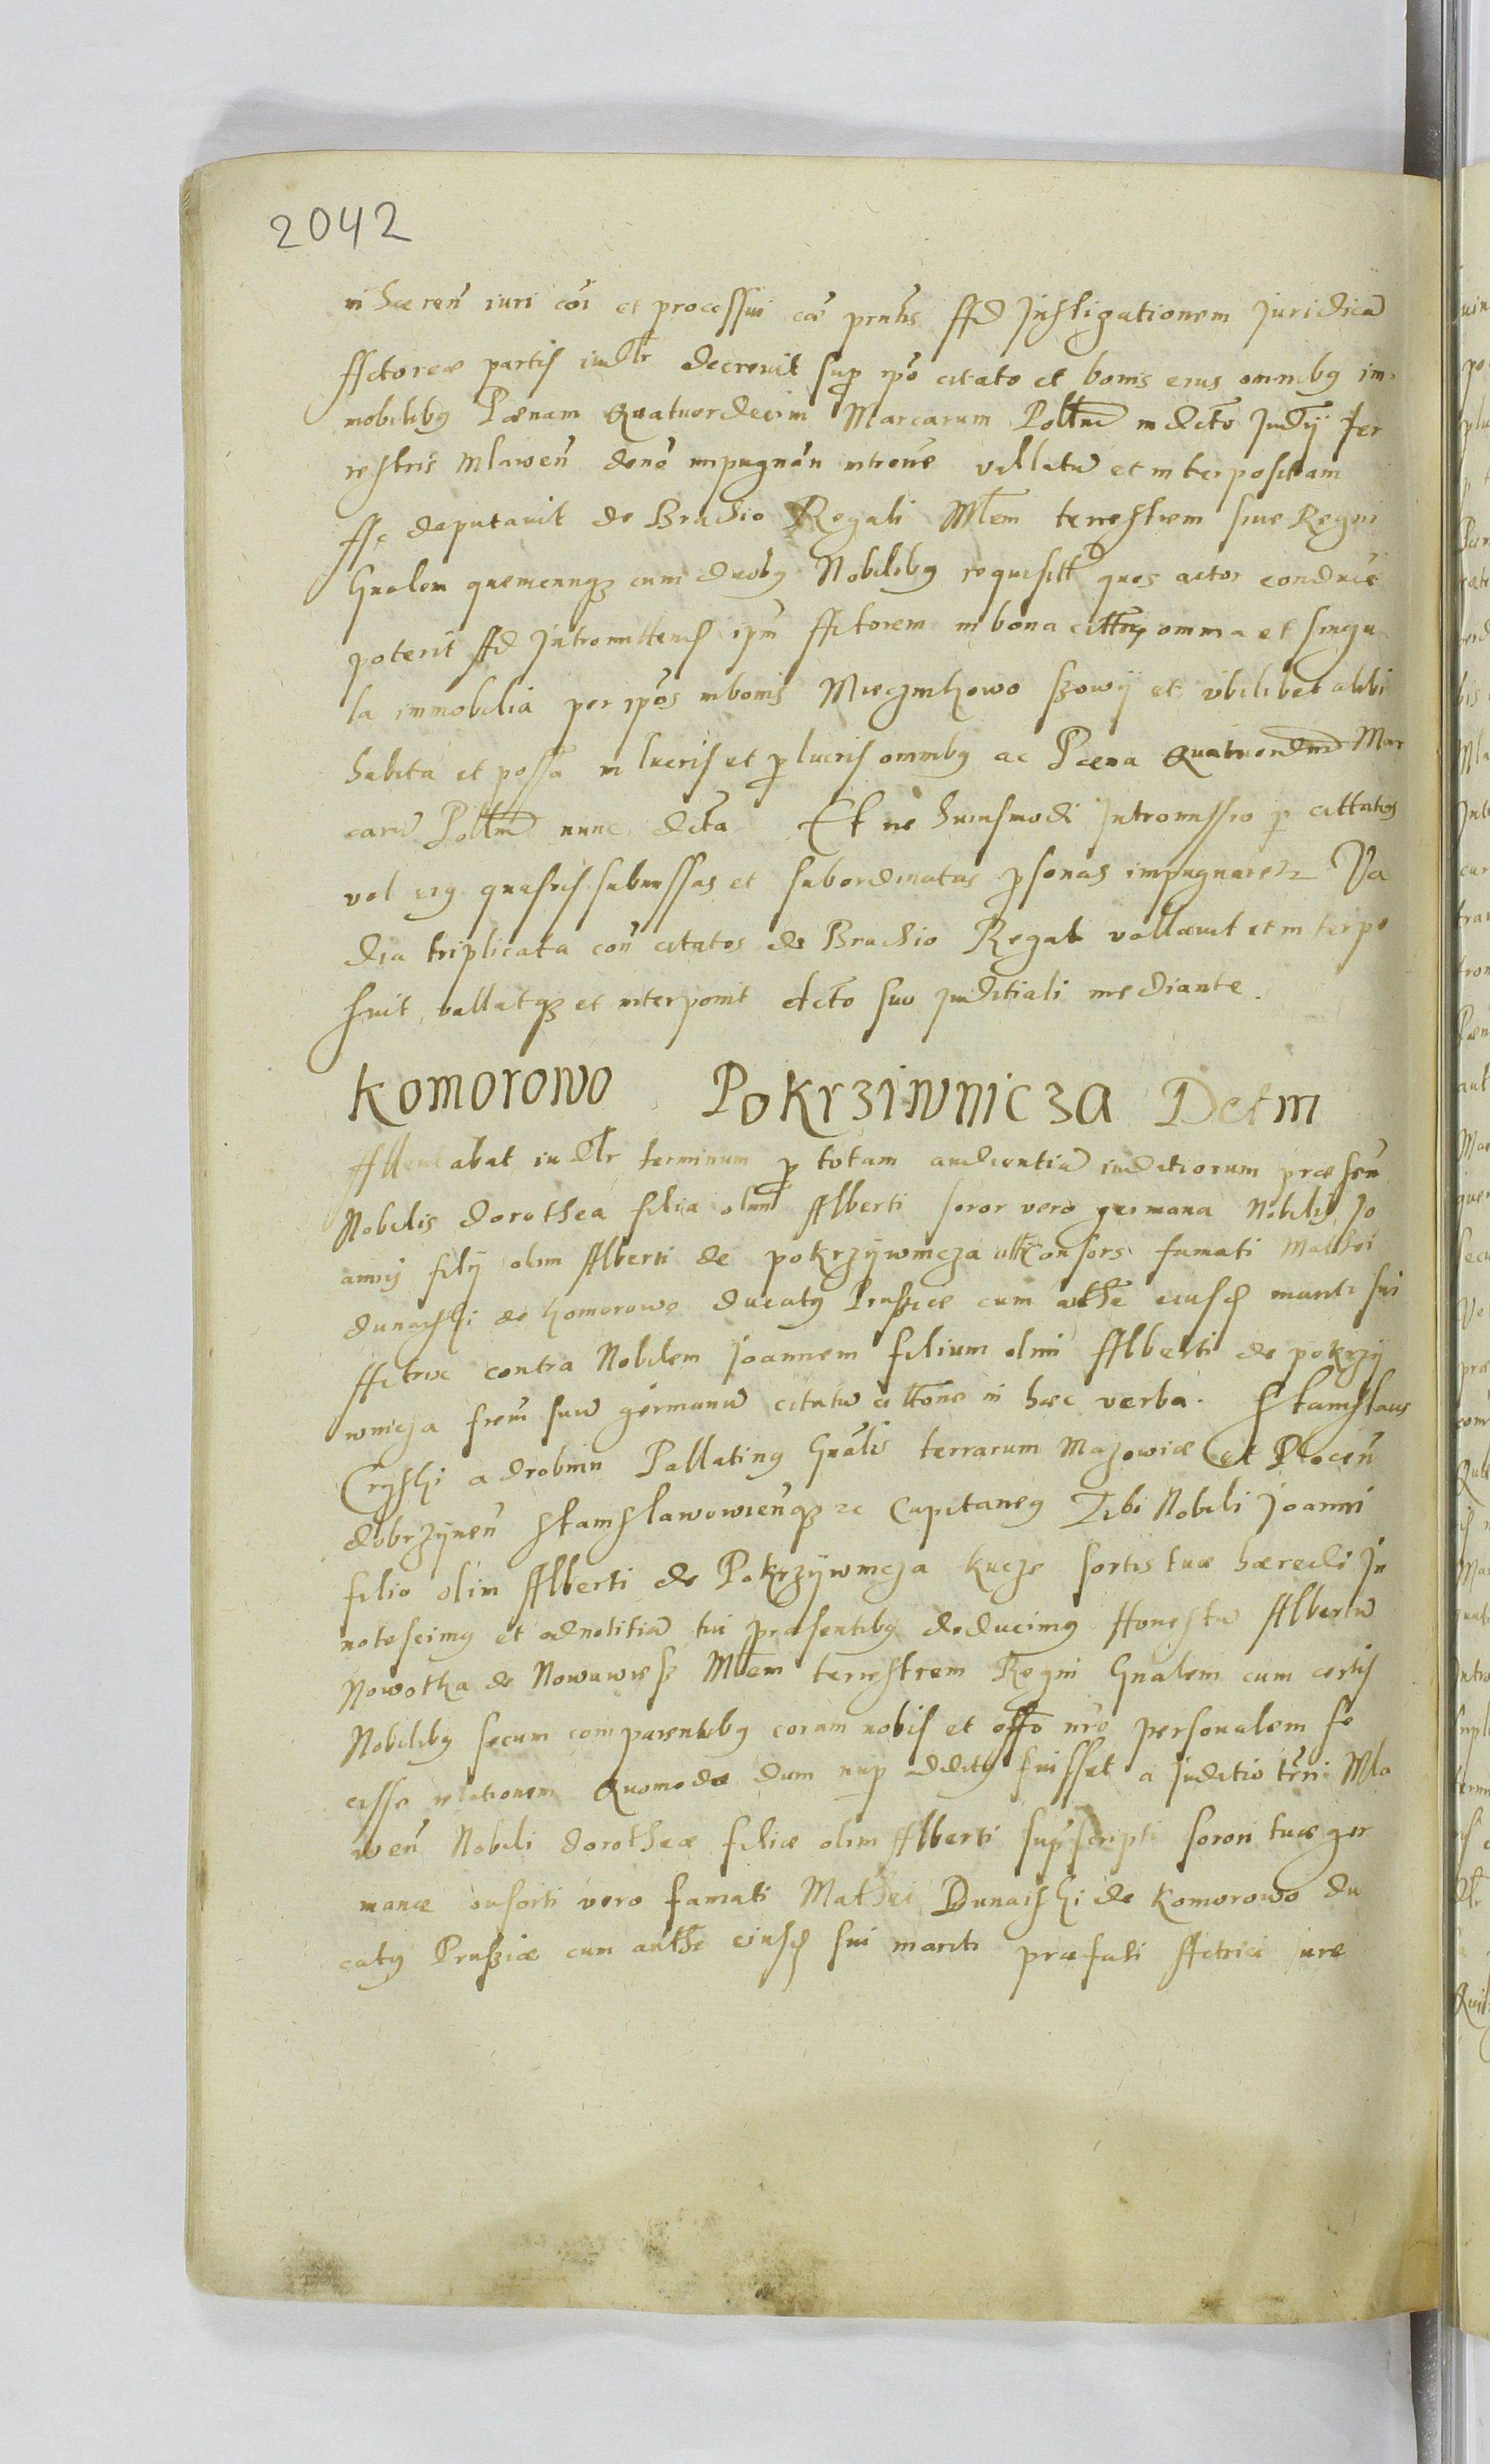 2042
in hæren̄ iuri cōi et processui cæ prntis Ad Instigationem Juridicā
Actoreæ partis iudr decrevit sup ipō citato et bonis eius omnibg im
mobilibg Pænam Quatuordecim Marcarum Polln̄ in decto Judy Ter
restris Mlawen̄ de nō impugnān introne vallatā et interpositam
Ac deputavit de Brachio Regali Mlem terrestrem sive Regni
Gnalem quemcunqz cum duobg Nobilibg requisitt quos actor conducē
poterit Ad Intromittend ipm Actorem in bona cittorū omnia et singu
la immobilia per ipōs in bonis szowy et ubilibet alibi
habita et possā in lucris et p lucris omnibg ac Pæna Quatuordm̄ Mar
carū Polln̄ nunc dcta Et ne huiusmodi Intromissio p cittatos
vel eig quasvis submissas et subordinatas psonas impugnaretr Va
dia triplicata con̄ citatos de Brachio Regali vallavit et interpo
suit, vallatqz et interponit dcto suo Juditiali mediante.
Komorowo Pokrziwnicza Detm
Attentabat iudr terminum p totam audientiā iuditiorum præsen̄
Nobilis Dorothea filia olim Alberti soror vero germana Nobilis Jo
annis fily olim Alberti de pokrzywnicza att Consors famati Mathei
Dunaiski de Komorowo Ducatg Prussiæ cum authē eiusd mariti sui
Actrix contra Nobilem Joannem filium olim Alberti de pokrzy
wnicza frem̄ suū germanū citatū cittone in hæc verba. Stanislaus
Cryski a drobnin Pallating Gnalis terrarum Mazowiæ et Plocen̄
dobrzynen̄ Stanislawowien̄qz zc Capitaneg Tibi Nobili Joanni
filio olim Alberti de Pokrzywnicza Kucze sortis tuæ hæredi In
notescimg et ad notitiā tui præsentibg deducimg Honestū Albertū
Nowotka de Nowawiess Mlem terrestrem Regni Gnalem cum certis
Nobilibg secum comparentibg coram nobis et offo nrō personalem fe
cisse relationem Quomodo dum nup additg fuisset a Juditio trrn̄i Mla
wen̄ Nobili Dorotheæ filiæ olim Alberti supscripti sorori tuæ ger
manæ consorti vero famati Mathei Dunaiski de Komorowo du
catg Prussiæ cum authē eiusd sui mariti præfati Actrici iure